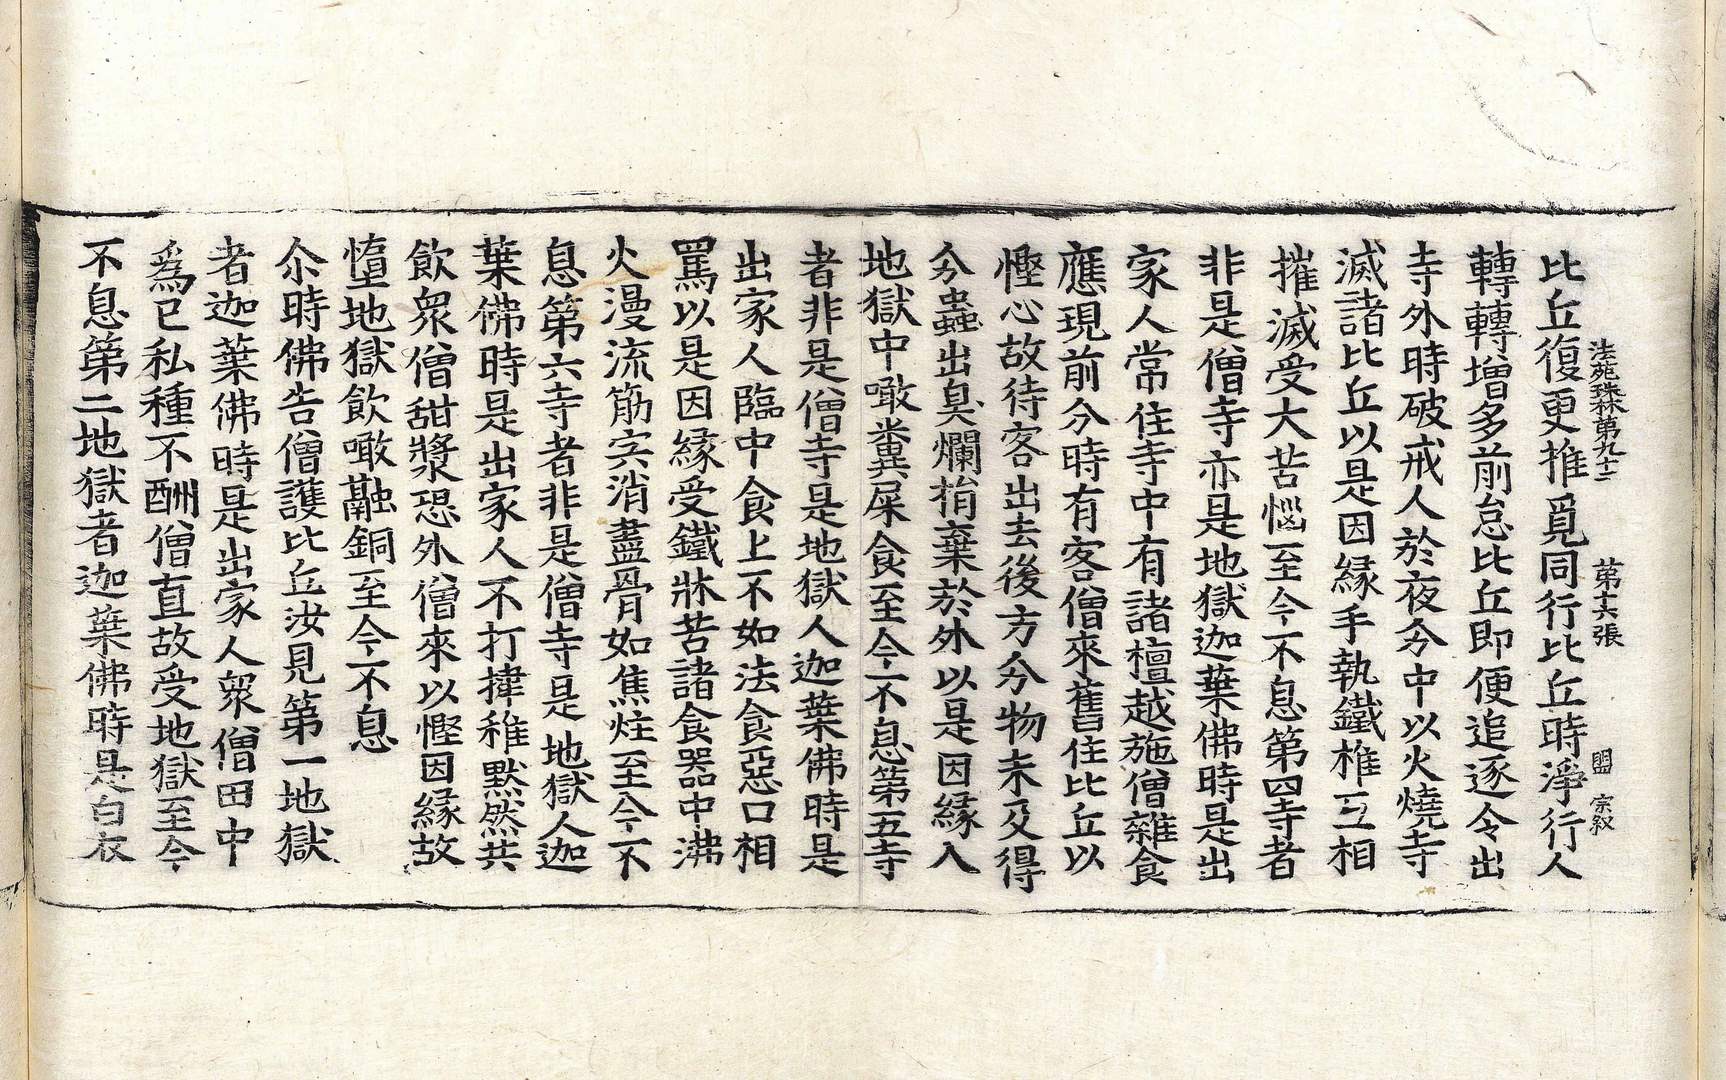 法苑珠林第九十二　第十六張　盟　宗叙
比丘復更推覓同行比丘時淨行人
轉轉增多前怠比丘即便追逐令出
寺外時破戒人於夜分中以火燒寺
滅諸比丘以是因緣手執鐵椎互相
摧滅受大苦惱至今不息第四寺者
非是僧寺亦是地獄迦葉佛時是出
家人常住寺中有諸檀越施僧雜食
應現前分時有客僧來舊住比丘以
慳心故待客出去後方分物未及得
分蟲出臭爛捐棄於外以是因緣入
地獄中噉糞屎食至今不息第五寺
者非是僧寺是地獄人迦葉佛時是
出家人臨中食上不如法食惡口相
罵以是因緣受鐵牀苦諸食器中沸
火漫流筋宍消盡骨如焦炷至今不
息第六寺者非是僧寺是地獄人迦
葉佛時是出家人不打揵稚默然共
飲衆僧甜漿恐外僧來以慳因緣故
墮地獄飲噉融銅至今不息
尒時佛告僧護比丘汝見第一地獄
者迦葉佛時是出家人衆僧田中
爲已私種不酬僧直故受地獄至今
不息第二地獄者迦葉佛時是白衣